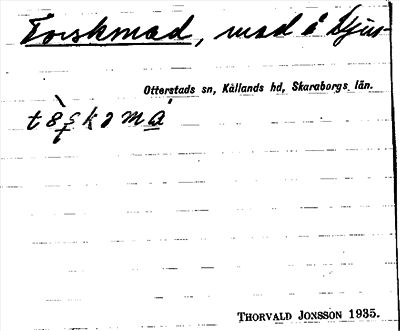 Torskmad, mad å Ljus-
Otterstads sn, Kållands hd, Skaraborgs län.
THORVALD JONSSON 1935.